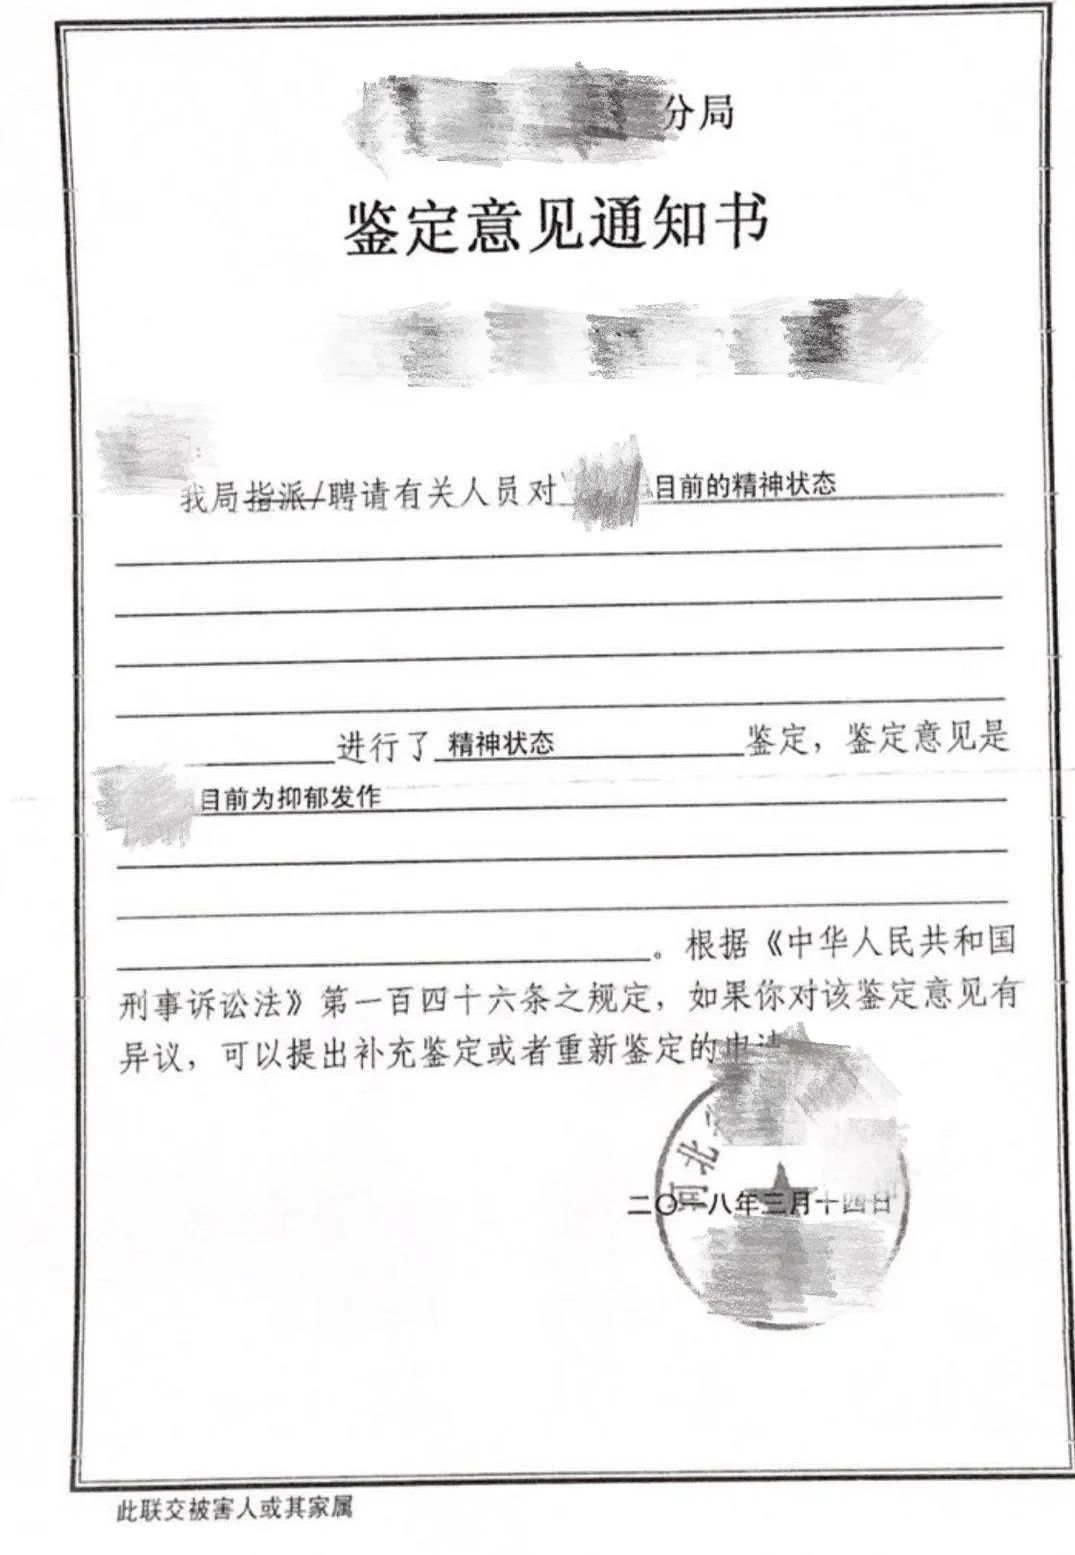 分局
鉴定意见通知书
:
我局指派/聘请有关人员对 目前的精神状态
进行了 精神状态 鉴定，鉴定意见是
目前为抑郁发作
。根据《中华人民共和国
刑事诉讼法》第一百四十六条之规定，如果你对该鉴定意见有
异议，可以提出补充鉴定或者重新鉴定的申请
河北
二〇一八年三月十四日
此联交被害人或其家属